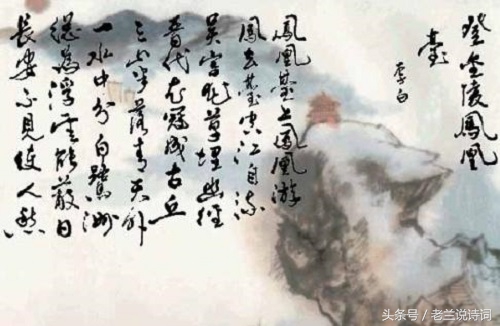 登金陵鳳凰
臺
李白
鳳凰臺上鳳凰游
鳳去臺空江自流
吳宮花草埋幽徑
晉代衣冠成古丘
三山半落青天外
一水中分白鷺洲
總為浮雲能蔽日
長安不見使人愁
头条号／老兰说诗词